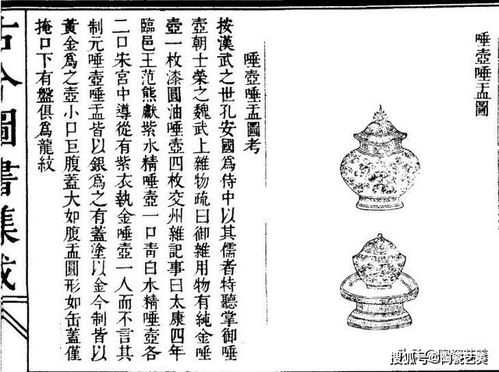 唾壺唾盂圖
唾壺唾盂圖考
按漢武之世孔安國為侍中以其儒者特聽掌御唾
壺朝士榮之魏武上雜物疏曰御雜用物有純金唾
壺一枚漆圓油唾壺四枚交州雜記事曰太康四年
臨邑王范熊獻紫水精唾壺一口青白水精唾壺各
二口宋宮中導從有紫衣執金唾壺一人而不言其
制元唾壺唾盂皆以銀為之有蓋塗以金今制皆以
黃金為之壺小口巨腹蓋大如腹盂圓形如缶蓋僅
掩口下有盤俱為龍紋
古今圖書集成
搜狐号@陶瓷艺美